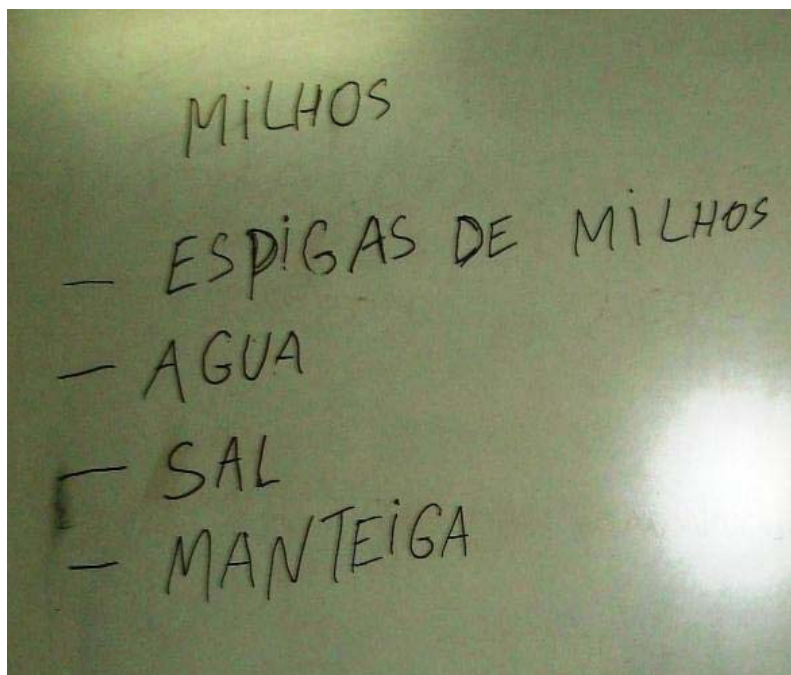 MiLHOS
- ESPiGAS DE MiLHOS
- AGUA
- SAL
- MANTEiGA